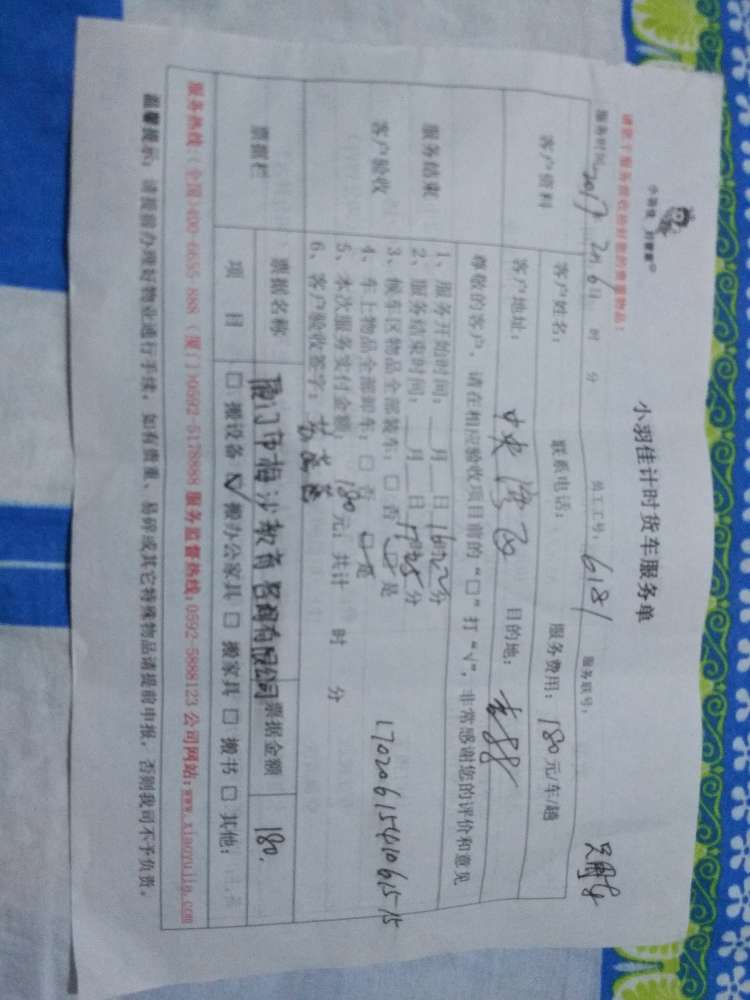 小羽佳 刘管家
小羽佳计时货车服务单
请您于服务前收拾好您的贵重物品!
服务时间: 2017 2月6日 时 分 员工工号: 6181 服务联号:
客户资料
客户姓名: 联系电话: 服务费用: 180元/车/趟
客户地址: 中央湾区 目的地:
服务结束
客户验收
尊敬的客户,请在相应验收项目前的“□”打“√”,非常感谢您的评价和意见
1、服务开始时间: 月 日16时22分
2、服务结束时间: 月 日17时25分
3、候车区物品全部装车: □ 否 □ 是
4、车上物品全部卸车: □ 否 □ 是
5、本次服务实付金额: 180元; 共计 时 分
6、客户验收签字:
1702061541061515
票据栏
票据名称 厦门市梅沙教育咨询有限公司 票据金额 180.
项 目 □ 搬设备 √ 搬办公家具 □ 搬家具 □ 搬书 □ 其他:
服务热线(全国)400-6655 888 (厦门)0592-5178888 服务监督热线:0592-5888123 公司网站:www.xiaoyujia.com
温馨提示: 请提前办理好物业通行手续, 如有贵重、易碎或其它特殊物品请提前申报, 否则我司不予负责。